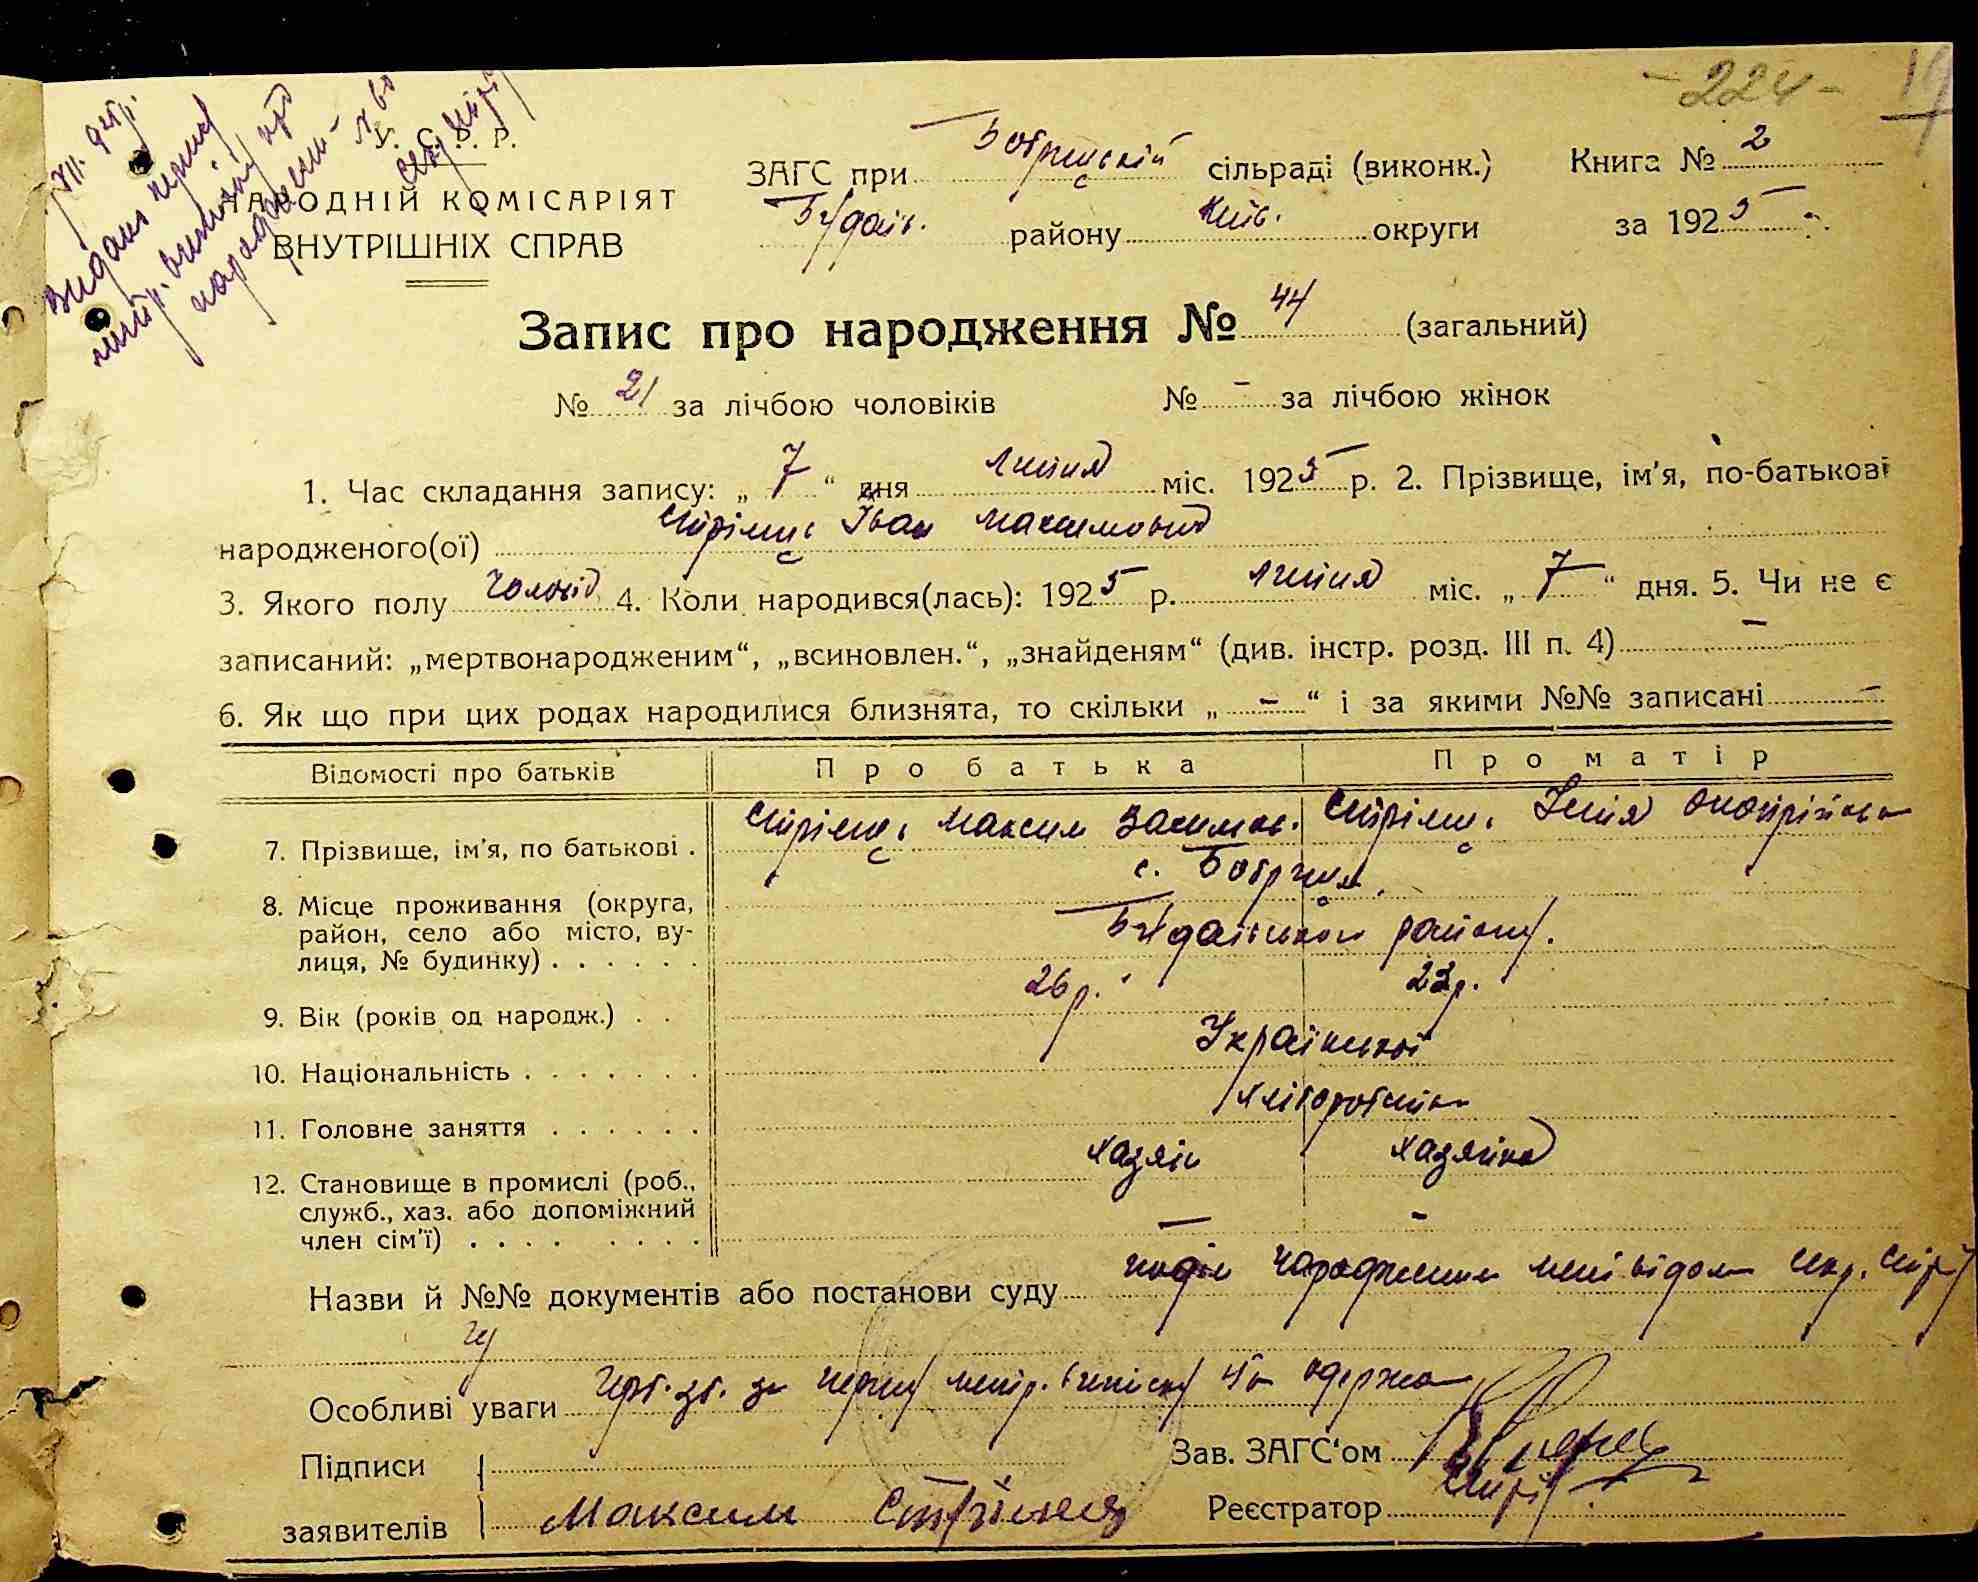 - 224 -
19
У. С. Р. Р.
НАРОДНІЙ КОМІСАРІЯТ
ВНУТРІШНІХ СПРАВ
ЗАГС при Бобрицькій сільраді (виконк.) Книга № 2
Будаїв. району Київ. округи за 1925
Запис про народження № 44 (загальний)
№ 21 за лічбою чоловіків № - за лічбою жінок
1. Час складання запису: „ 7 “ дня липня міс. 1925 р. 2. Прізвище, ім'я, по-батькові
народженого(ої) Стрілець Іван Максимович
3. Якого полу чолов. 4. Коли народився(лась): 1925 р. липня міс. „ 7 “ дня. 5. Чи не є
записаний: „мертвонародженим“, „всиновлен.“, „знайденям“ (див. інстр. розд. III п. 4) -
6. Як що при цих родах народилися близнята, то скільки „ - “ і за якими №№ записані -
Відомості про батьків Про батька Про матір
7. Прізвище, ім'я, по батькові . Стрілець Максим Стрілець
8. Місце проживання (округа, район, село або місто, вулиця, № будинку) с. Бобриця
Будаївського району.
9. Вік (років од народж.) 26 р. 23 р.
10. Національність Української
11. Головне заняття Хліборобство
12. Становище в промислі (роб., служб., хаз. або допоміжний член сім'ї) хазяїн хазяйка
- -
Назви й №№ документів або постанови суду народження
Особливі уваги за першу метр. виписку
Підписи Зав. ЗАГС'ом
заявителів Максим Стрілець Реєстратор